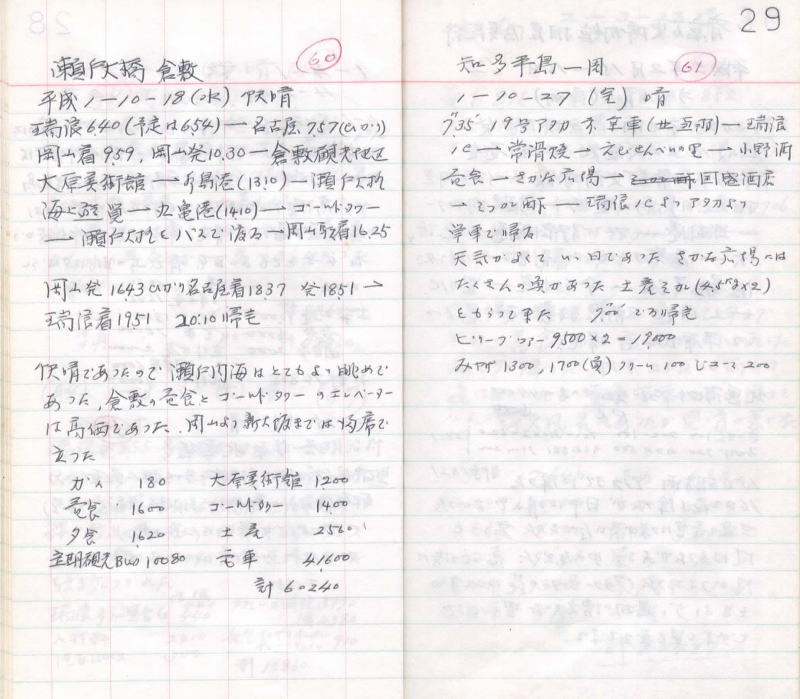 瀬戸大橋 倉敷 60
平成1-10-18(水) 快晴
瑞浪640(予定は654)→名古屋757(ひかり)
岡山着959,岡山発10.30→倉敷観光地区
大原美術館→児島港(1310)→瀬戸大橋
海上遊覧→丸亀港(1410)→ゴールドタワー
→瀬戸大橋をバスで渡る→岡山駅着16.25
岡山発1643ひかり名古屋着1837 発1851→
瑞浪着1951 20:10帰宅
快晴であったので瀬戸内海はとてもよい眺めで
あった,倉敷の昼食とゴールドタワーのエレベーター
は高価であった.岡山より新大阪までは満席で
立った
180 大原美術館1200
昼食 1600 ゴールドタワー 1400
夕食 1620 土産 2560
定期観光Bus10080 電車 41600
計60240
29
知多半島一周 61
1-10-27(金) 晴
735 19号アタカ 京草(せ互市)→瑞浪
IC→常滑焼→えびせんべいの里→小野浦
昼食→さかな広場→国盛酒店
→ミツカン酢→瑞浪ICよりアタカより
単車で帰る
天気がよくていい日であった さかな広場には
たくさんの魚があった 土産
をもらって来た 帰宅
9500×2=19000
みやげ1300,1700(貝)クリーム100ジュース200
28